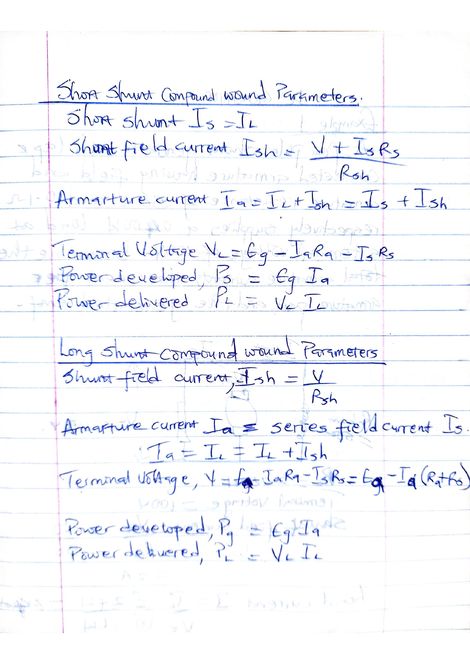 Short Shunt Compound wound Parameters.
Short shunt Is = IL
Shunt field current Ish = V + IsRs / Rsh
Armarture current Ia = IL + Ish = Is + Ish
Terminal Voltage VL = Eg - IaRa - IsRs
Power developed, Pg = Eg Ia
Power delivered PL = VL IL
Long Shunt Compound wound Parameters
Shunt field current, Ish = V / Rsh
Armarture current Ia = series field current Is.
Ia = IL = IL + Ish
Terminal Voltage, V = Eg - IaRa - IsRs = Eg - Ia (Ra+Rs)
Power developed, Pg = Eg Ia
Power delivered, PL = VL IL